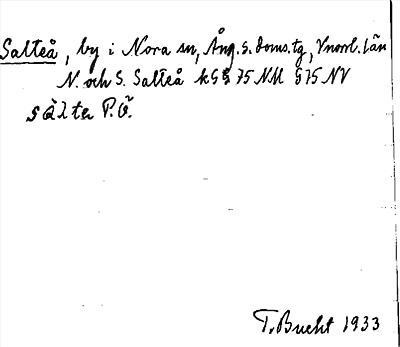 Salteå, by i Nora sn, Ång. s. doms.tg, Vnorrl. län
N. och S. Salteå k 5 § 75 NM § 75 NV
sàlta P.Ö.
T. Bucht 1933